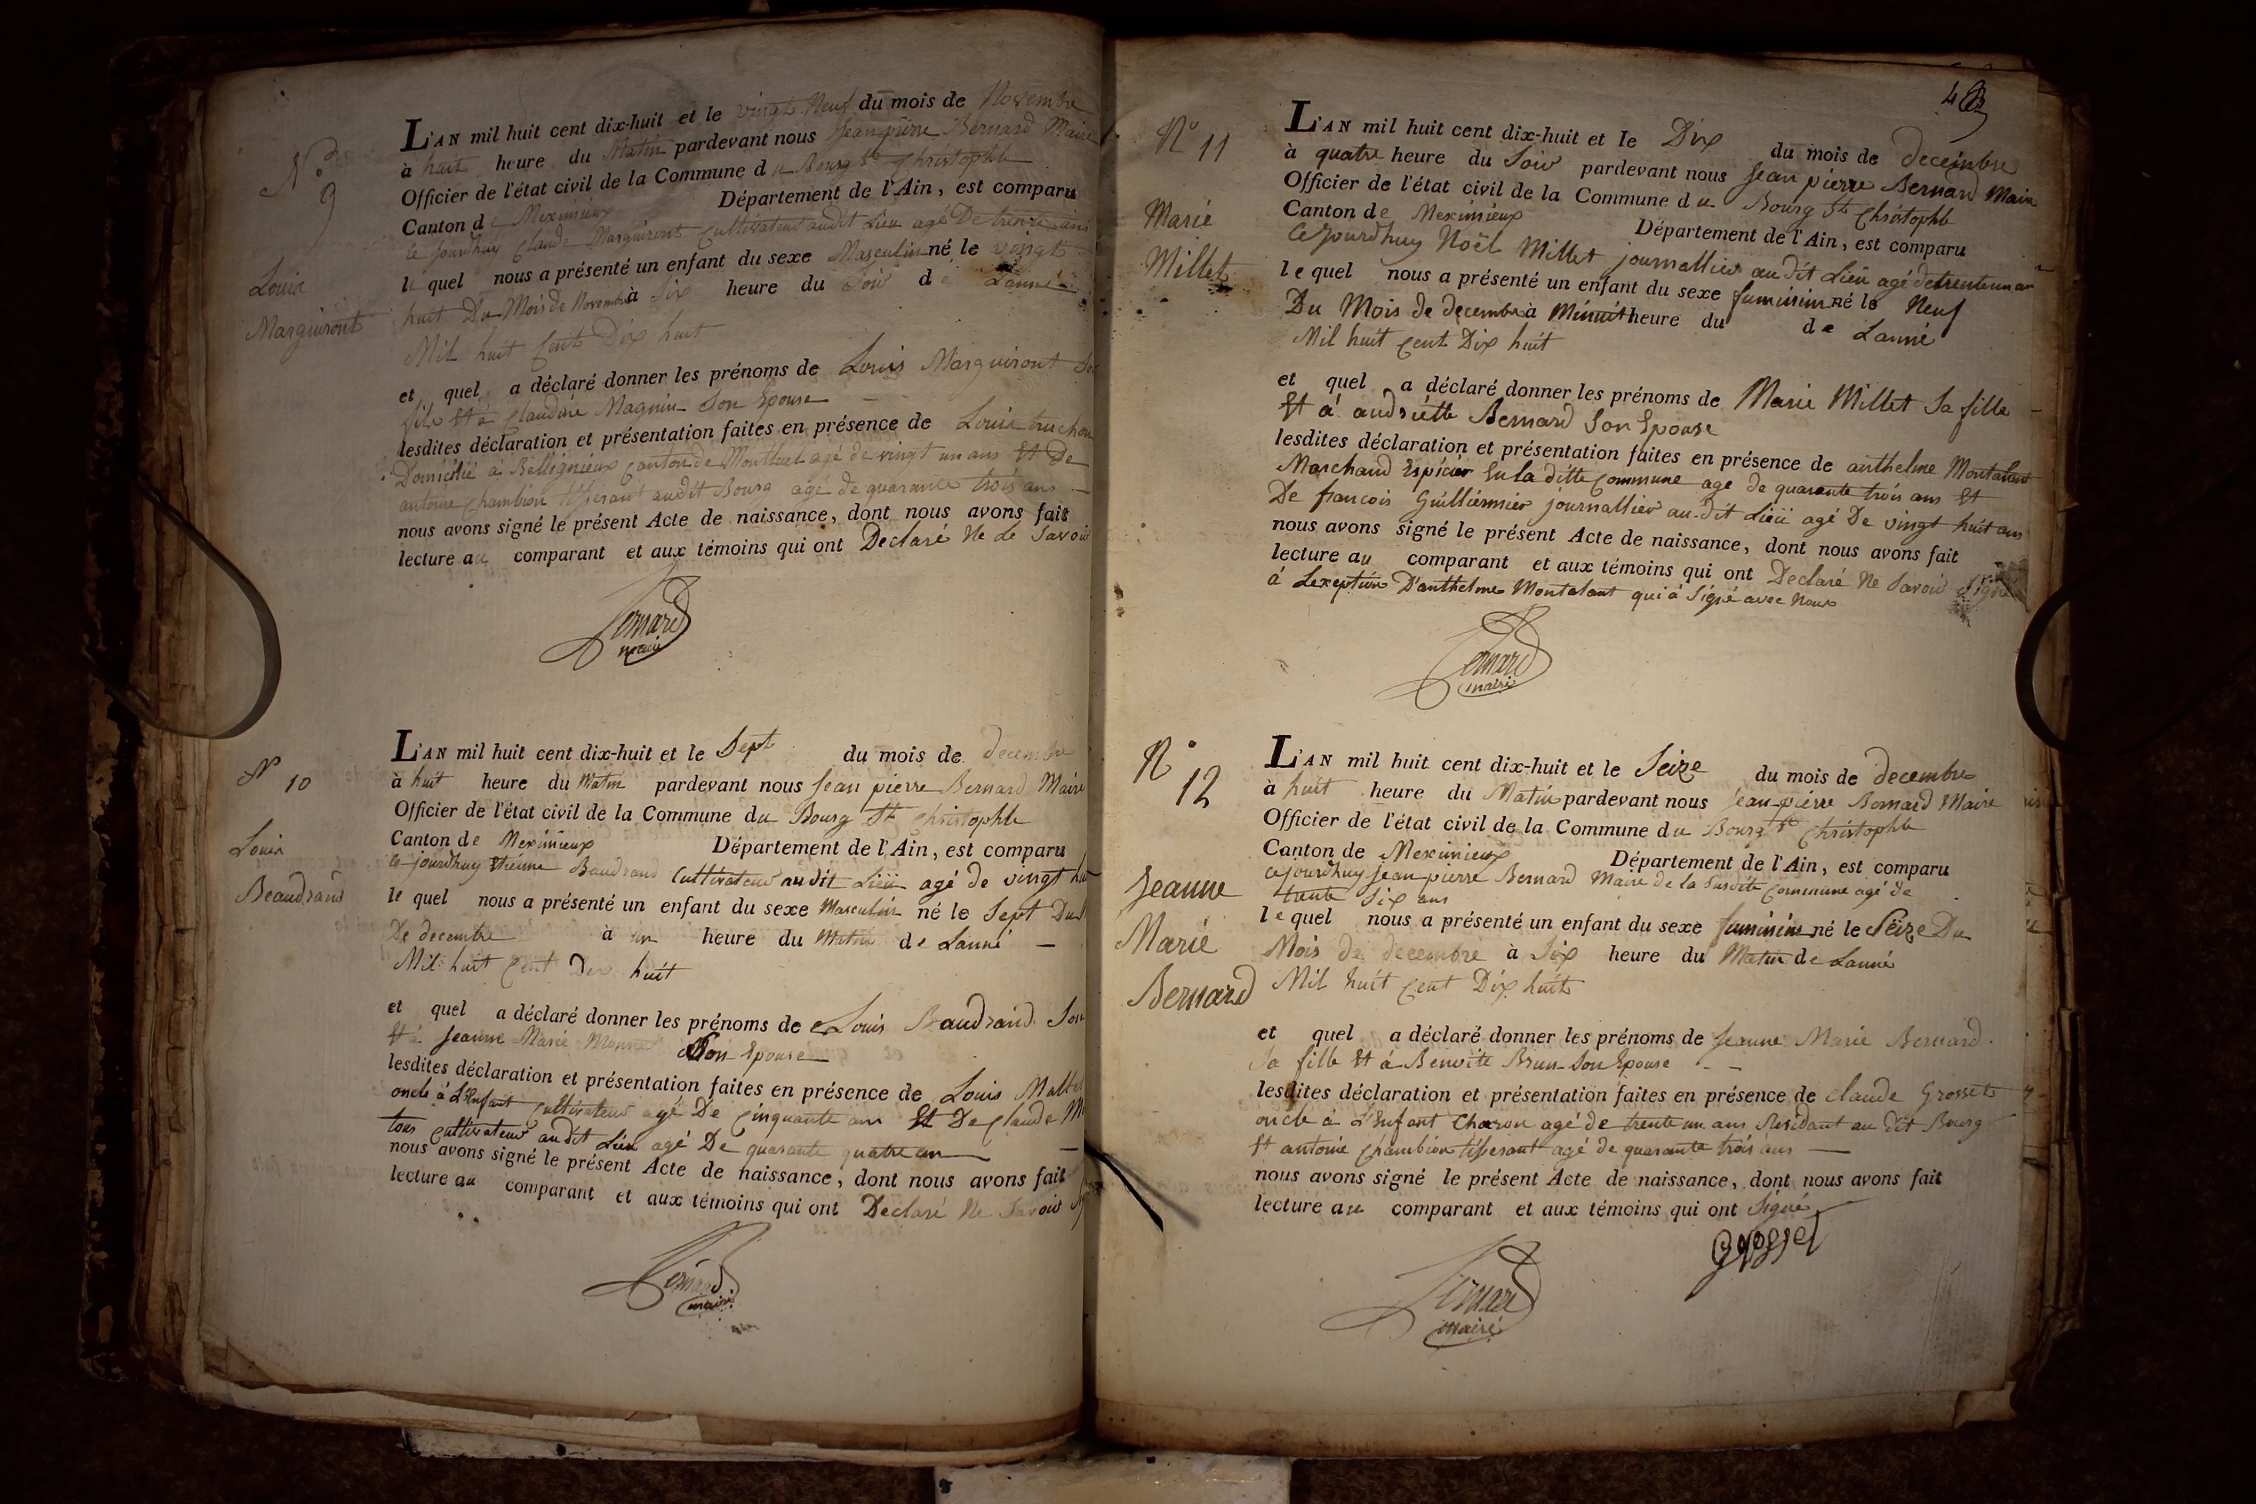 N° 9
Louis
Marguiront
L'AN mil huit cent dix-huit et le vingt Neuf du mois de Novembre
à huit heure du Matin pardevant nous Jean pierre Bernard Maire
Officier de l'état civil de la Commune du Bourg St Christophle
Canton de Meximieux Département de l'Ain, est comparu
ce jourdhuy Claude Marguiront Cultivateur audit Lieu agé De trente ans
le quel nous a présenté un enfant du sexe Masculin né le vingt
huit Du Mois de Novembre à Six heure du Soir de Lanné
Mil huit Cent Dix huit
et quel a déclaré donner les prénoms de Louis Marguiront Son
fils Et à Claudine Magnin Son Epouse
lesdites déclaration et présentation faites en présence de Louis truchon
Domicilié à Bellignieux Canton de Montluel agé de vingt un ans Et De
antoine Chambion tisserant audit Bourg agé de quarante trois ans
nous avons signé le présent Acte de naissance, dont nous avons fait
lecture au comparant et aux témoins qui ont Declaré Ne Le Savoir
Bernard
maire
N° 10
Louis
Beaudrand
L'AN mil huit cent dix-huit et le Sept du mois de decembre
à huit heure du Matin pardevant nous Jean pierre Bernard Maire
Officier de l'état civil de la Commune du Bourg St Christophle
Canton de Meximieux Département de l'Ain, est comparu
ce jourdhuy Etienne Baudrand Cultivateur au dit Lieü agé de vingt
le quel nous a présenté un enfant du sexe Masculin né le Sept Du
De decembre à un heure du Matin de Lanné
Mil huit Cent Dix huit
et quel a déclaré donner les prénoms de Louis Baudrand Son
Et à Jeanne Marie Son Epouse
lesdites déclaration et présentation faites en présence de Louis
oncle à L'Enfant Cultivateur agé De Cinquante ans Et De Claude
tous Cultivateur audit Lieu agé De quarante quatre an
nous avons signé le présent Acte de naissance, dont nous avons fait
lecture au comparant et aux témoins qui ont Declaré Ne Savoir
Bernard
maire
N° 11
Marie
Millet
L'AN mil huit cent dix-huit et le Dix du mois de decembre
à quatre heure du Soir pardevant nous Jean pierre Bernard Maire
Officier de l'état civil de la Commune du Bourg St Christophle
Canton de Meximieux Département de l'Ain, est comparu
Cejourdhuy Noël Millet journallier au dit Lieü agé de trente un an
le quel nous a présenté un enfant du sexe feminin né le Neuf
Du Mois de decembre à Minuit heure du de Lanné
Mil huit Cent Dix huit
et quel a déclaré donner les prénoms de Marie Millet Sa fille
Et à andriette Bernard Son Epouse
lesdites déclaration et présentation faites en présence de anthelme Montalant
Marchand Epicier En la ditte Commune age de quarante trois ans Et
De francois Guilliermier journallier au dit Lieü agé De vingt huit ans
nous avons signé le présent Acte de naissance, dont nous avons fait
lecture au comparant et aux témoins qui ont Declaré Ne Savoir Signé
à Lexeption D'anthelme Montalant qui à Signé avec Nous
Bernard
maire
N° 12
Jeanne
Marie
Bernard
L'AN mil huit cent dix-huit et le Seize du mois de decembre
à huit heure du Matin pardevant nous Jean pierre Bernard Maire
Officier de l'état civil de la Commune du Bourg St Christophle
Canton de Meximieux Département de l'Ain, est comparu
cejourdhuy Jean pierre Bernard Maire de la Susdite Commune agé de
trente Six ans
le quel nous a présenté un enfant du sexe feminin né le Seize Du
Mois de decembre à Six heure du Matin de Lanné
Mil huit Cent Dix huit
et quel a déclaré donner les prénoms de Jeanne Marie Bernard
Sa fille Et à Benoite Brun Son Epouse
lesdites déclaration et présentation faites en présence de Claude Grosset
oncle à L'Enfant Charon agé de trente un ans Residant au dit Bourg
Et antoine Chambion tisserant agé de quarante trois ans
nous avons signé le présent Acte de naissance, dont nous avons fait
lecture au comparant et aux témoins qui ont Signé
Grosset
Bernard
maire